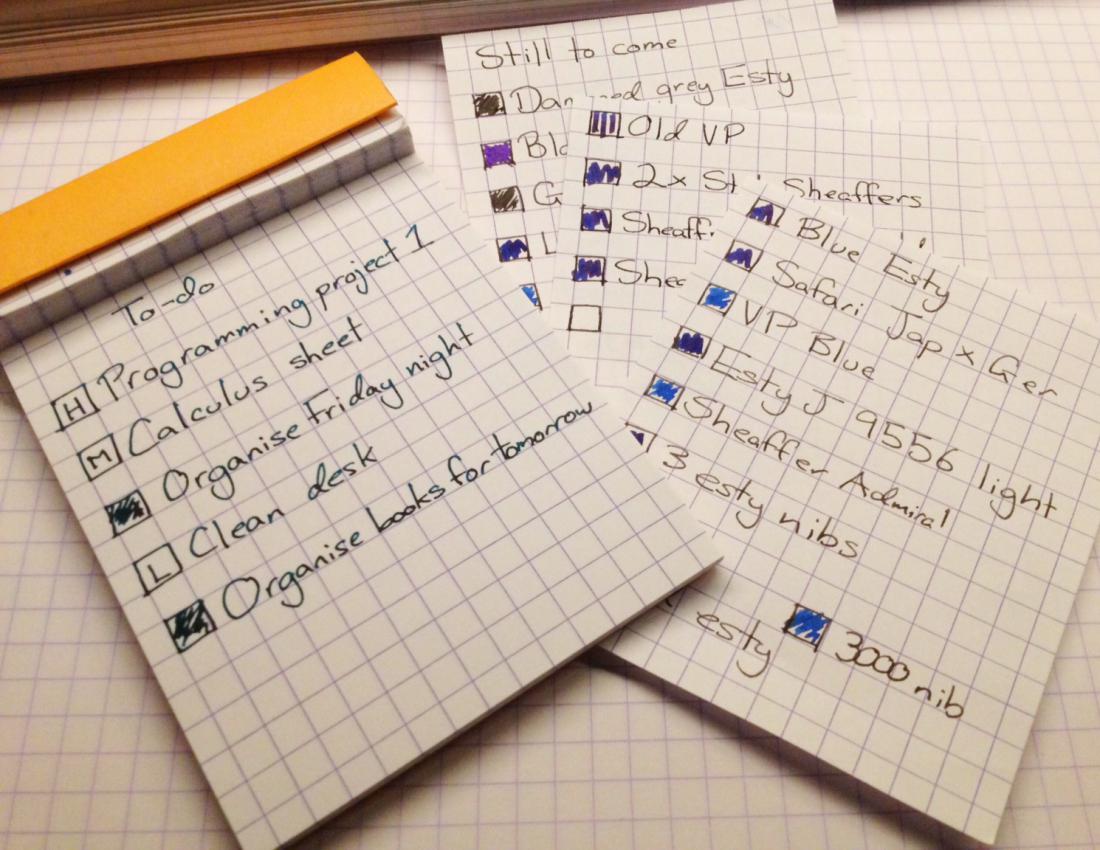 To-do
H Programming project 1
M Calculus sheet
Organise Friday night
L Clean desk
Organise books for tomorrow
Still to come
grey Esty
Old VP
2x Sheaffers
Blue Esty
Safari Jap x Ger
VP Blue
Esty J 9556 light
Sheaffer Admiral
3 esty nibs
esty 3000 nib